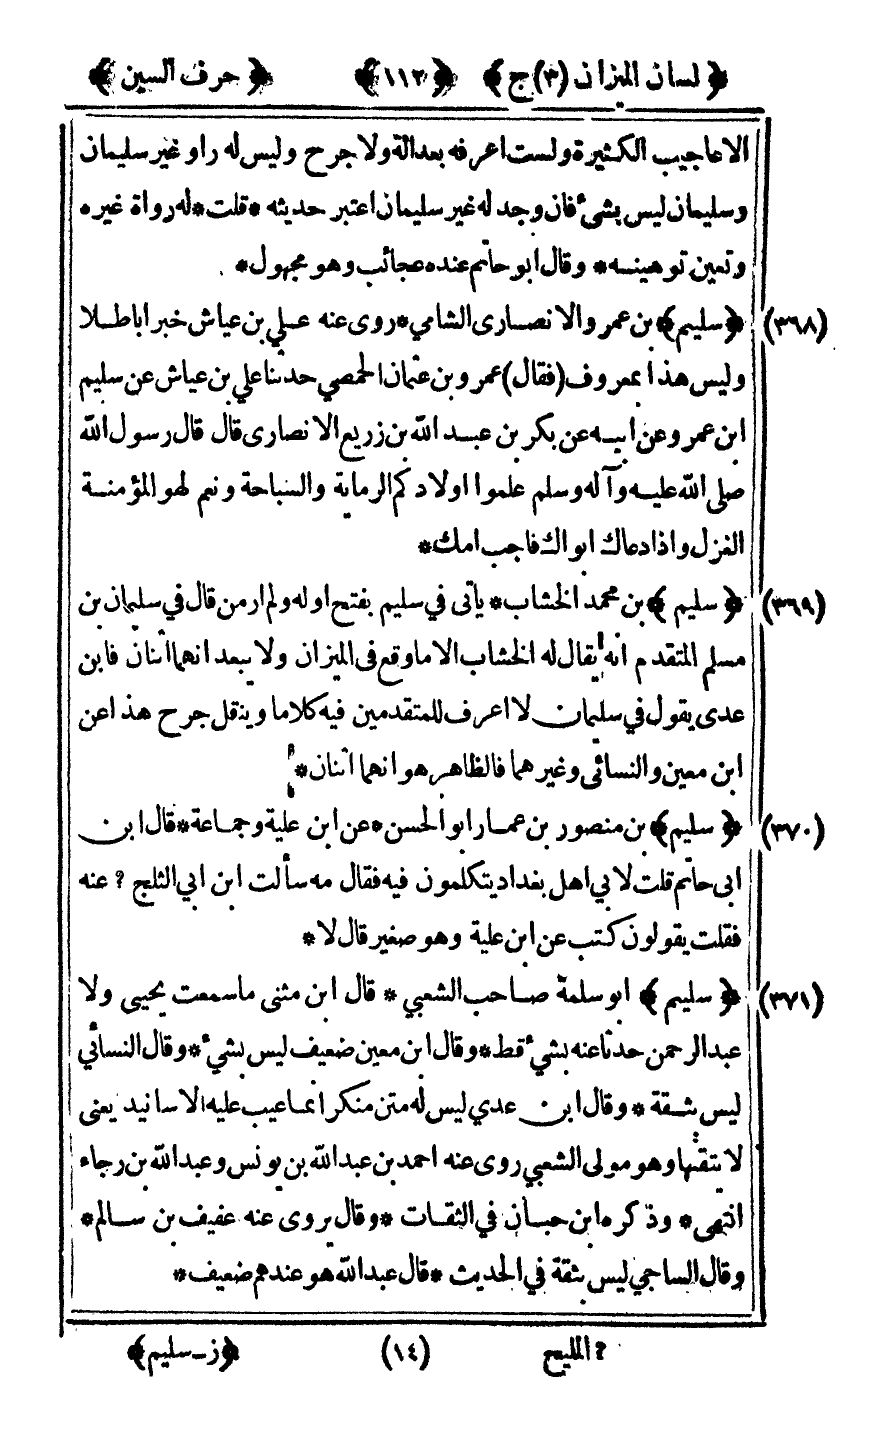 ﴿ لسان الميزان (٣) ج ﴾ ﴿ ١١٢ ﴾ ﴿ حرف السين ﴾
الاعاجيب الكثيرة ولست اعرفه بعدالة ولا جرح وليس له راو غير سليمان
وسليمان ليس بشئ فان وجد له غير سليمان اعتبر حديثه * قلت * له رواة غيره
وتعين توهينه * وقال ابو حاتم عنده عجائب وهو مجهول *
(٣٦٨) ﴿ سليم ﴾ بن عمرو الانصارى الشامي * روى عنه على بن عياش خبرا باطلا
وليس هذا بمعروف (فقال) عمرو بن عثمان الحمصي حدثنا علي بن عياش عن سليم
ابن عمرو عن ابيه عن بكر بن عبد الله بن زريع الانصارى قال قال رسول الله
صلى الله عليه وآله وسلم علموا اولادكم الرماية والسباحة ونعم لهو المؤمنة
الغزل واذا دعاك ابواك فاجب امك *
(٣٦٩) ﴿ سليم ﴾ بن محمد الخشاب * يأتى في سليم بفتح اوله ولم ار من قال في سليمان بن
مسلم المتقدم انه يقال له الخشاب الا ما وقع فى الميزان ولا يبعد انهما اثنان فابن
عدى يقول في سليمان لا اعرف للمتقدمين فيه كلاما وينقل جرح هذا عن
ابن معين والنسائى وغيرهما فالظاهر هو انهما اثنان *
(٣٧٠) ﴿ سليم ﴾ بن منصور بن عمار ابو الحسن * عن ابن علية وجماعة * قال ابن
ابى حاتم قلت لابي اهل بغداد يتكلمون فيه فقال مه سألت ابن ابي الثلج ? عنه
فقلت يقولون كتب عن ابن علية وهو صغير قال لا *
(٣٧١) ﴿ سليم ﴾ ابو سلمة صاحب الشعبي * قال ابن مثنى ما سمعت يحيى ولا
عبد الرحمن حدثا عنه بشئ قط * وقال ابن معين ضعيف ليس بشئ * وقال النسائي
ليس بثقة * وقال ابن عدي ليس له متن منكر انما عيب عليه الاسانيد يعنى
لا يتقنها وهو مولى الشعبي روى عنه احمد بن عبد الله بن يونس وعبد الله بن رجاء
انتهى * وذكره ابن حبان في الثقات * وقال يروى عنه عفيف بن سالم *
وقال الساجي ليس بثقة في الحديث * قال عبد الله هو عندهم ضعيف *
? المليح (١٤) ﴿ ز - سليم ﴾